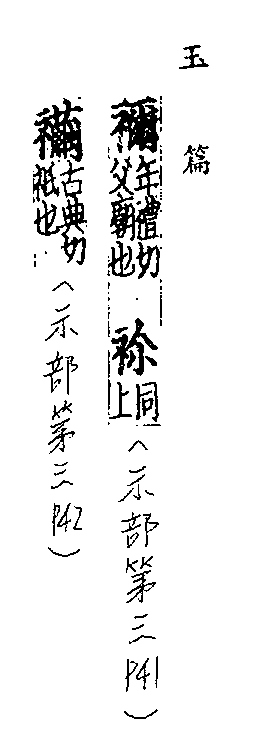 玉篇
禰年禮切父廟也 祢同上（示部第三P41）
古典切 也（示部第三P42）